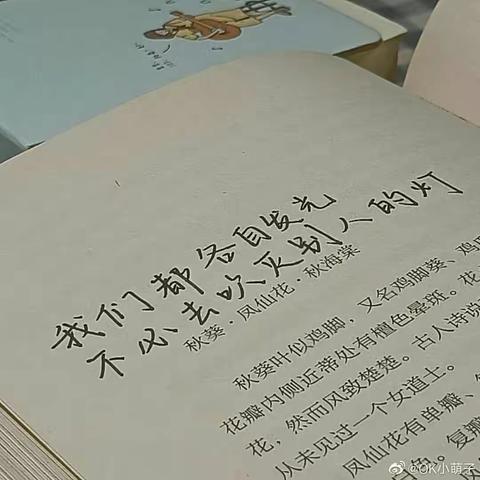 我们都各自发光
不必去吹灭别人的灯
秋葵·凤仙花·秋海棠
秋葵叶似鸡脚，又名鸡脚葵、鸡
花瓣内侧近蒂处有檀色晕斑。花
花，然而风致楚楚。古人诗说
从未见过一个女道士。
凤仙花有单瓣、
白色。复瓣
@OK小萌子